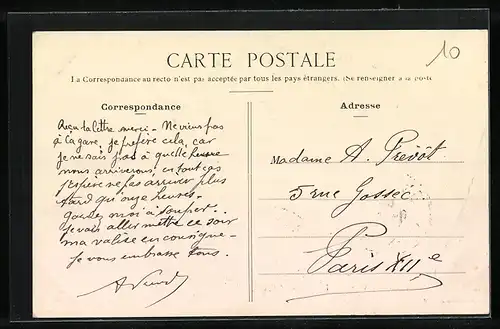 10
CARTE POSTALE
La Correspondance au recto n'est pas acceptée par tous les pays étrangers. (Se renseigner à la poste
Correspondance
Adresse
Reçu ta lettre merci - Ne viens pas
à la gare, je préfère cela, car
je ne sais pas à quelle heure
nous arriverons, en tout cas
j'espère ne pas arriver plus
tard qu'onze heures -
gardez moi à souper.
Je vais aller mettre ce soir
ma valise en consigne -
Je vous embrasse tous.
Madame A. Prévôt
5 rue Gossec
Paris XII e